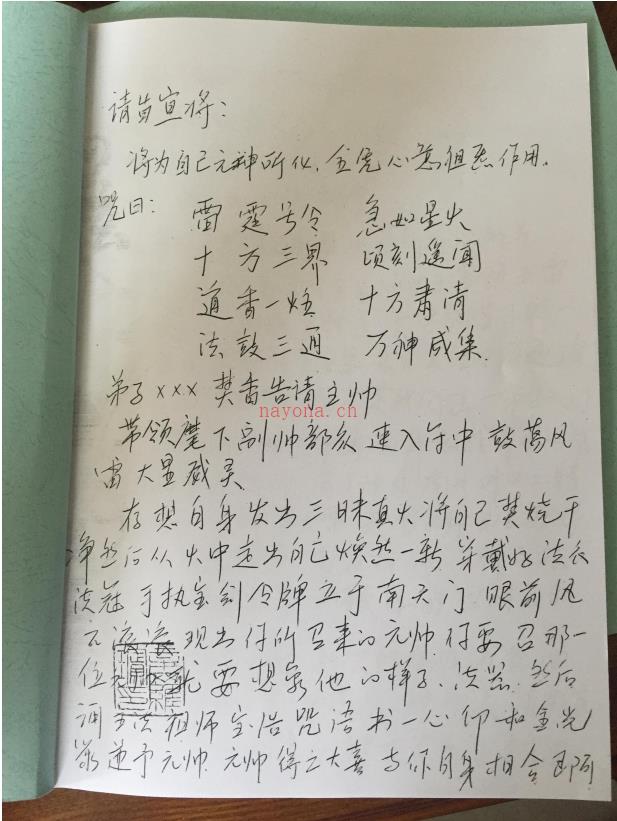 请旨宣将：
将为自己元神所化，全凭心意祖炁作用。
咒曰：雷霆号令 急如星火
十方三界 顷刻遥闻
道香一炷 十方肃清
法鼓三通 万神咸集
弟子xxx 焚香告请主帅
nayona.ch
带领麾下副帅部众 速入符中 鼓荡风
雷大显威灵
存想自身发出三昧真火将自己焚烧干
净然后从火中走出自己焕然一新 穿戴好法衣
法冠 手执宝剑令牌立于南天门 眼前风
云滚滚 现出你所召来的元帅 你要召那一
位 就要想象他的样子，法器，然后
诵 法祖师宝诰咒语书一心 和金光
递予元帅 元帅得之大喜 与你自身相合 即